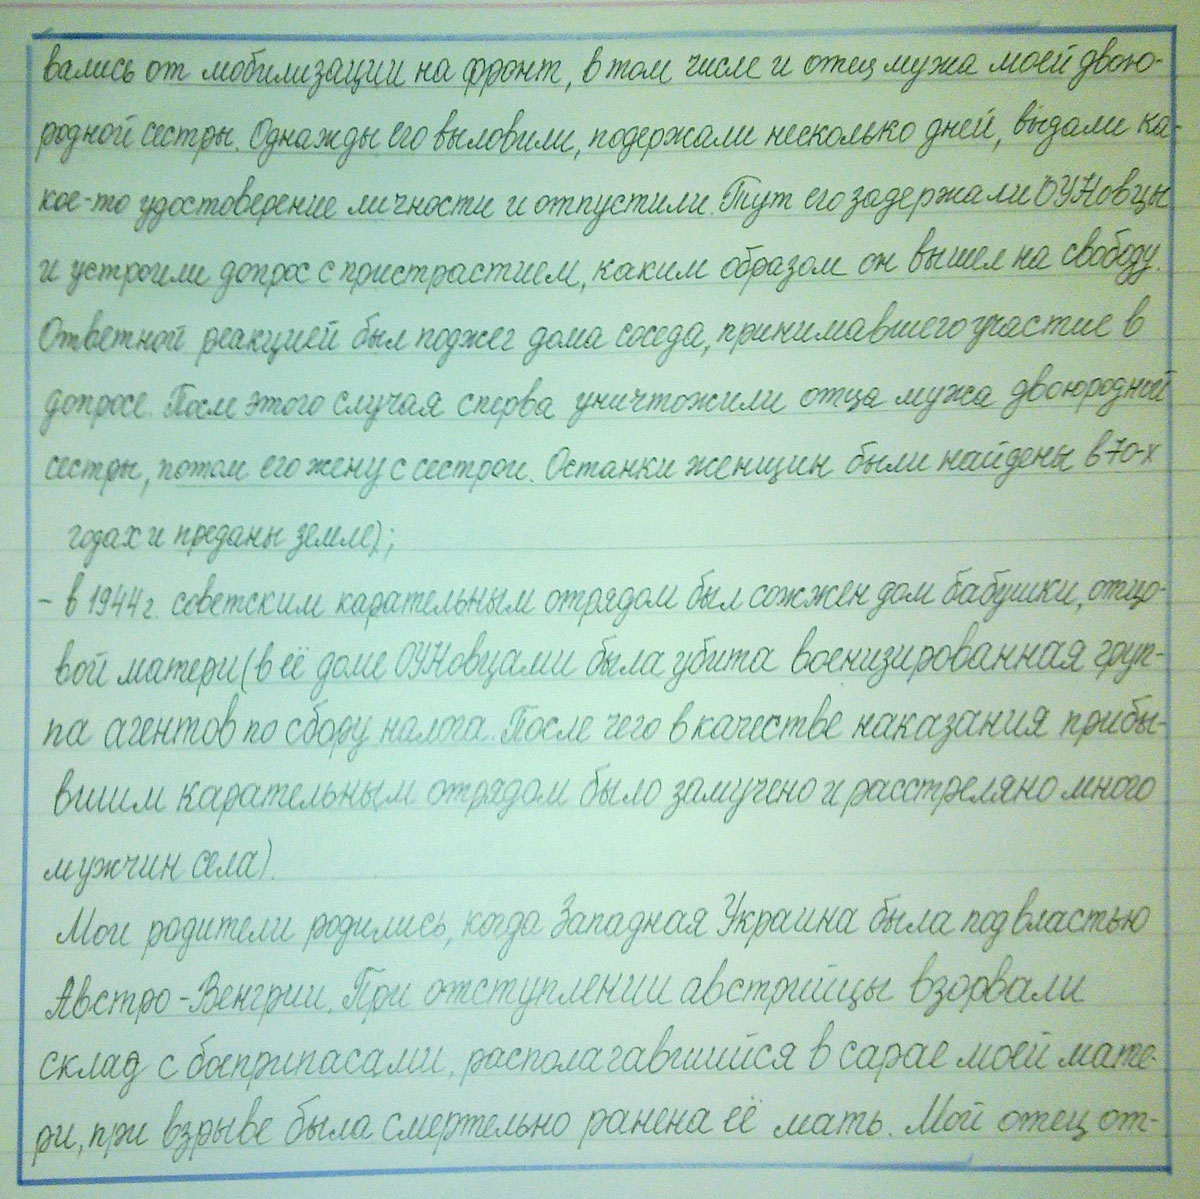 вались от мобилизации на фронт, в том числе и отец мужа моей двою-
родной сестры. Однажды его выловили, подержали несколько дней, выдали ка-
кое-то удостоверение личности и отпустили. Тут его задержали ОУНовцы
и устроили допрос с пристрастием, каким образом он вышел на свободу.
Ответной реакцией был поджег дома соседа, принимавшего участие в
допросе. После этого случая сперва уничтожили отца мужа двоюродной
сестры, потом его жену с сестрой. Останки женщин были найдены в 70-х
годах и преданы земле);
- в 1944 г. советским карательным отрядом был сожжен дом бабушки, отцо-
вой матери (в её доме ОУНовцами была убита военизированная груп-
па агентов по сбору налога. После чего в качестве наказания прибы-
вшим карательным отрядом было замучено и расстреляно много
мужчин села).
Мои родители родились, когда Западная Украина была под властью
Австро-Венгрии. При отступлении австрийцы взорвали
склад с боеприпасами, располагавшийся в сарае моей мате-
ри, при взрыве была смертельно ранена её мать. Мой отец от-